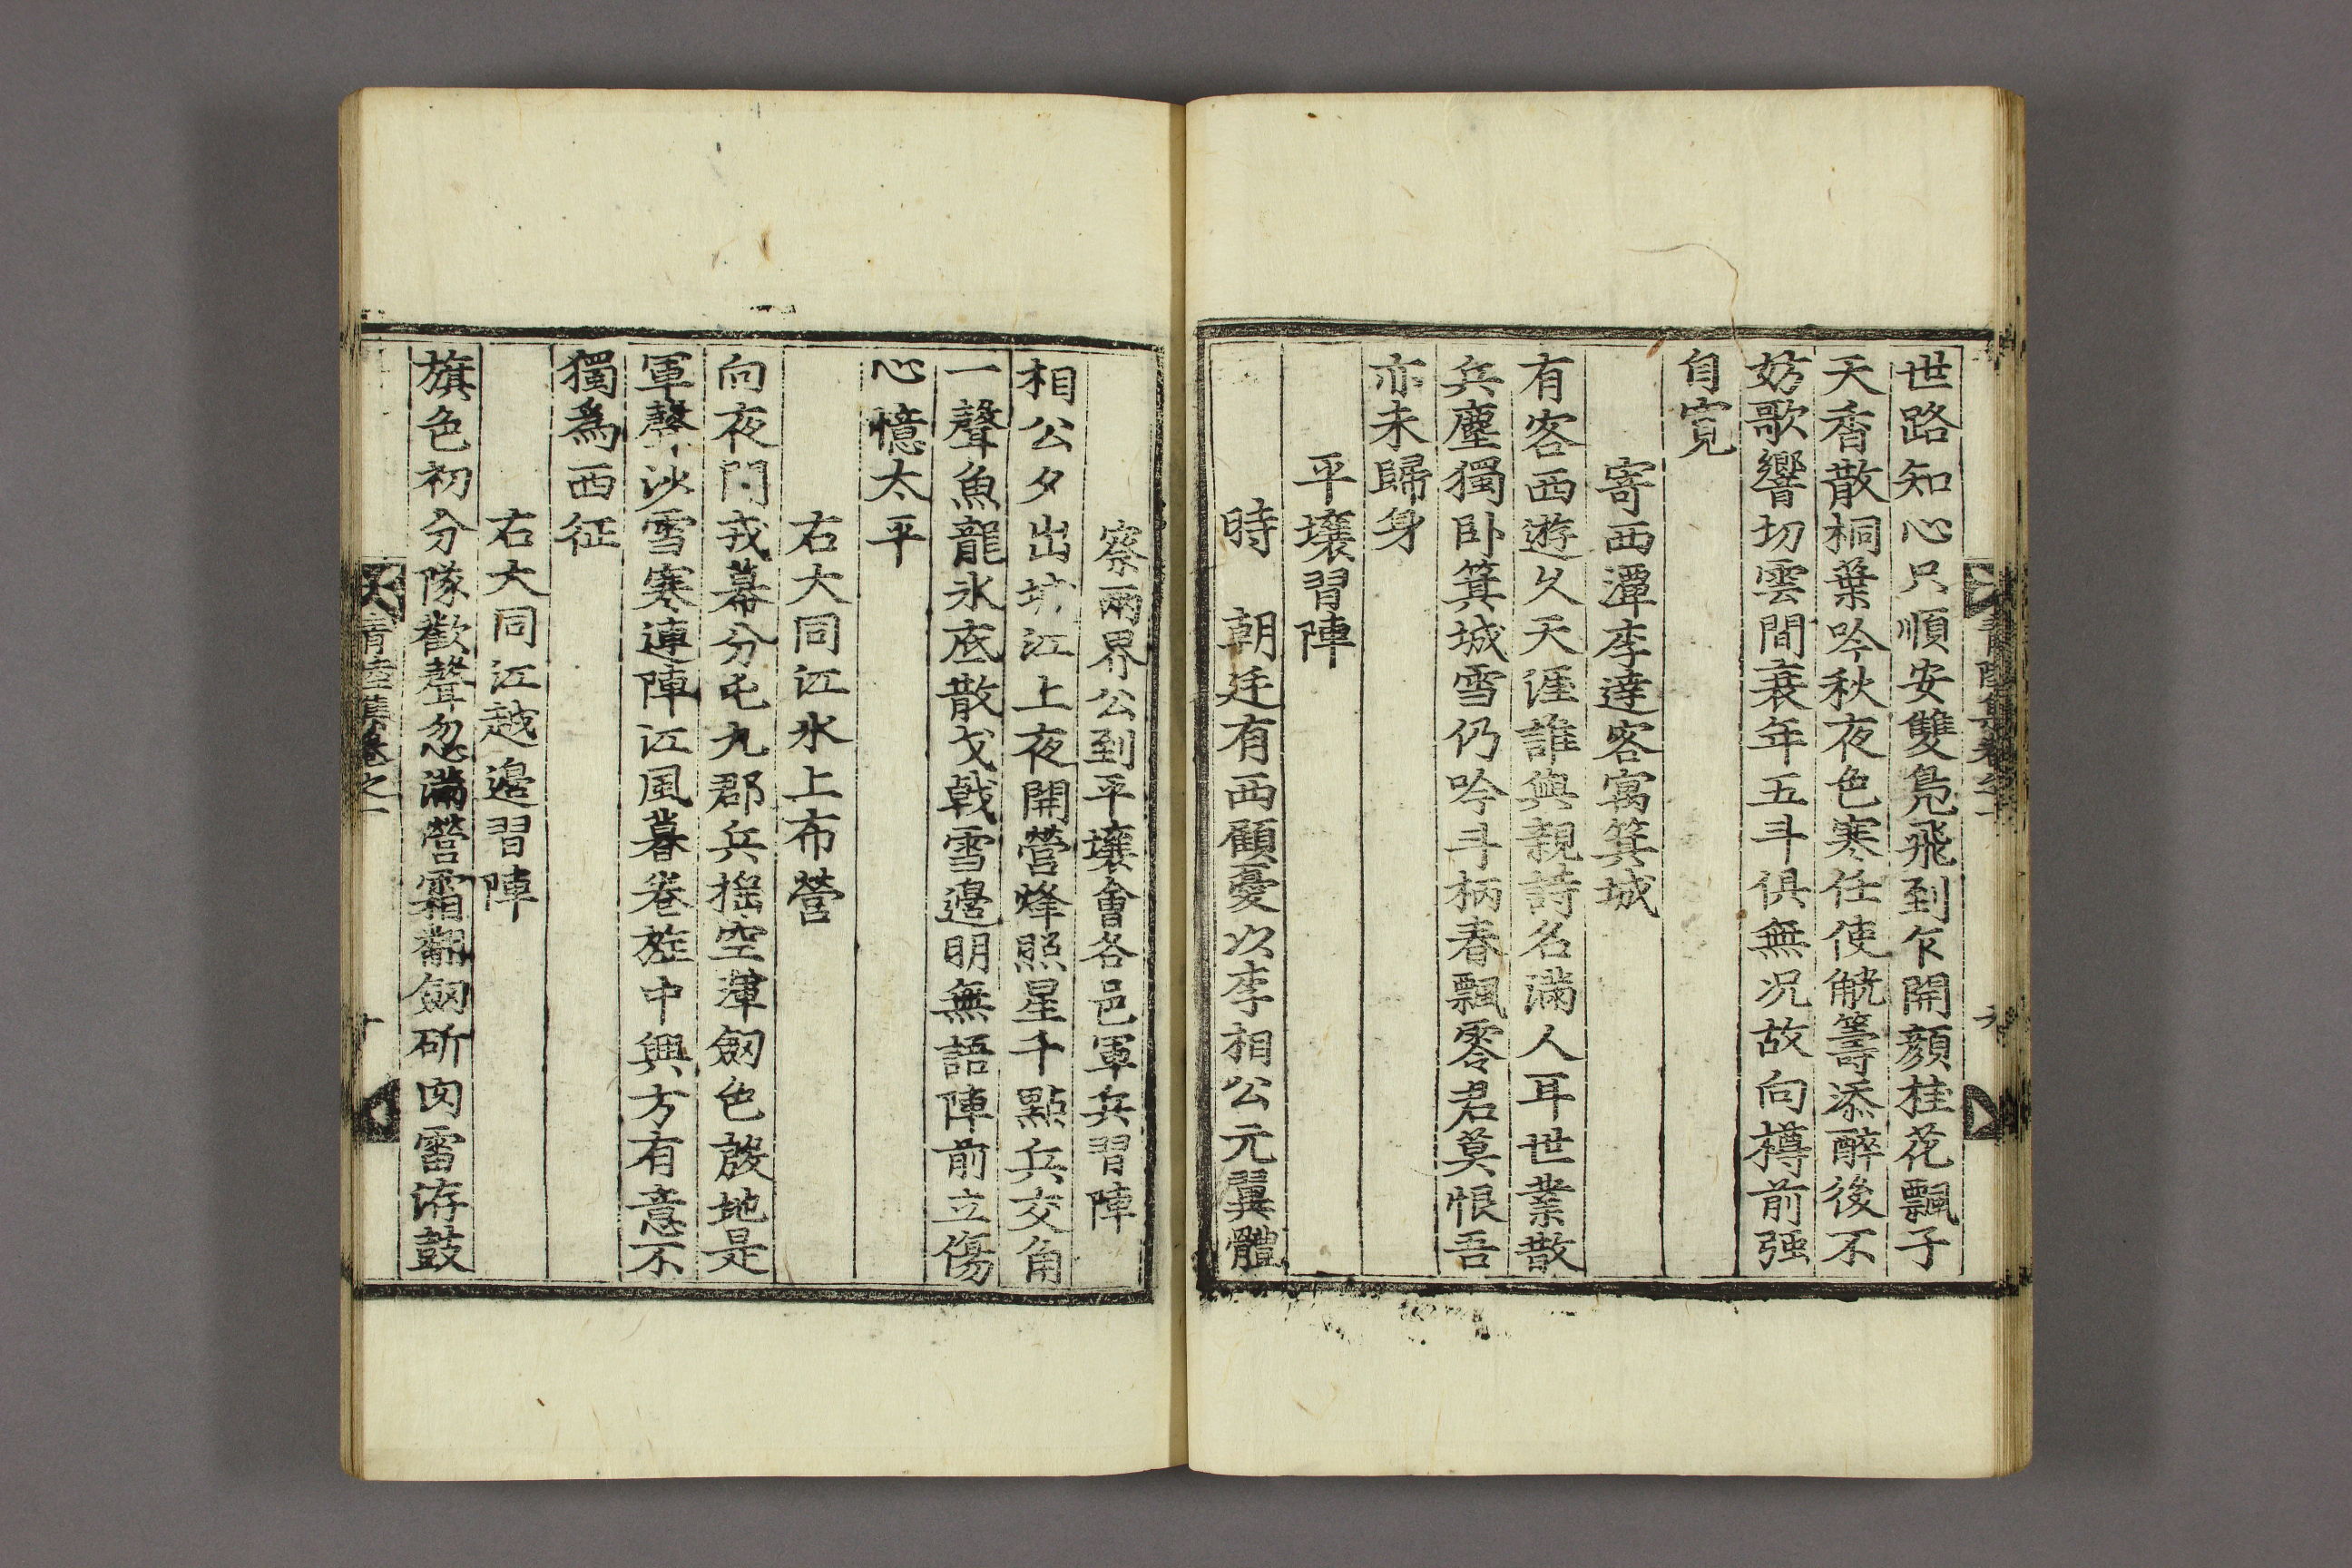 世路知心只順安雙鳧飛到乍開顔桂花飄子
天香散桐葉吟秋夜色寒任使觥籌添醉後不
妨歌響切雲間衰年五斗俱無况故向樽前强
自寬
寄西潭李達客寓箕城
有客西遊久天涯誰與親詩名滿人耳世業散
兵塵獨卧箕城雪仍吟斗柄春飄零君莫恨吾
亦未歸身
平壤習陣
時 朝廷有西顧憂以李相公元翼體
察兩界公到平壤會各邑軍兵習陣
相公夕出城江上夜開營烽照星千點兵交角
一聲魚龍氷底散戈戟雪邊明無語陣前立傷
心憶太平
右大同江氷上布營
向夜閉戎幕分屯九郡兵揺空渾劒色殷地是
軍聲沙雪寒連陣江風暮卷旌中興方有意不
獨爲西征
右大同江越邊習陣
旗色初分隊歡聲忽滿營霜翻劒斫肉雷洊鼓
青陸集卷之一